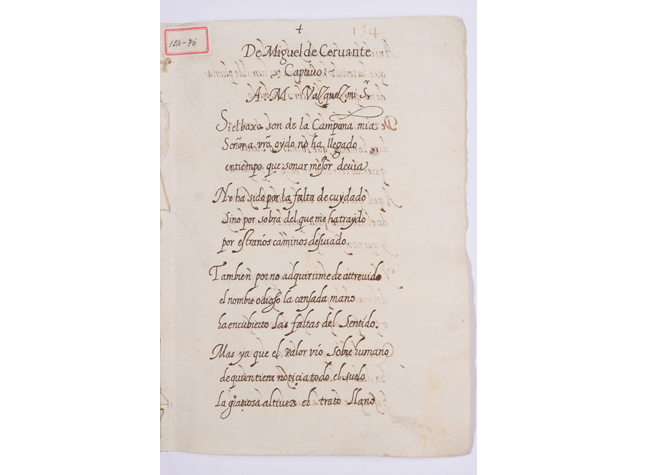 +
134
154-76
De Miguel de Ceruante
Captiuo:
A. M. Vazquez mi Sr.
Si el baxo son de la Campoña mia
Señor, vro oydo no ha llegado
en tiempo que sonar mejor deuia
No ha sido por la falta de cuydado
Sino por sobra del que me ha traydo
por estraños caminos desuiado.
Tambien por no adquirirme de attreuido
el nombre odioso la cansada mano
ha encubierto las faltas del sentido.
Mas ya que el valor vro sobre humano
de quien tiene noticia todo el suelo
la graciosa altiuez el trato llano